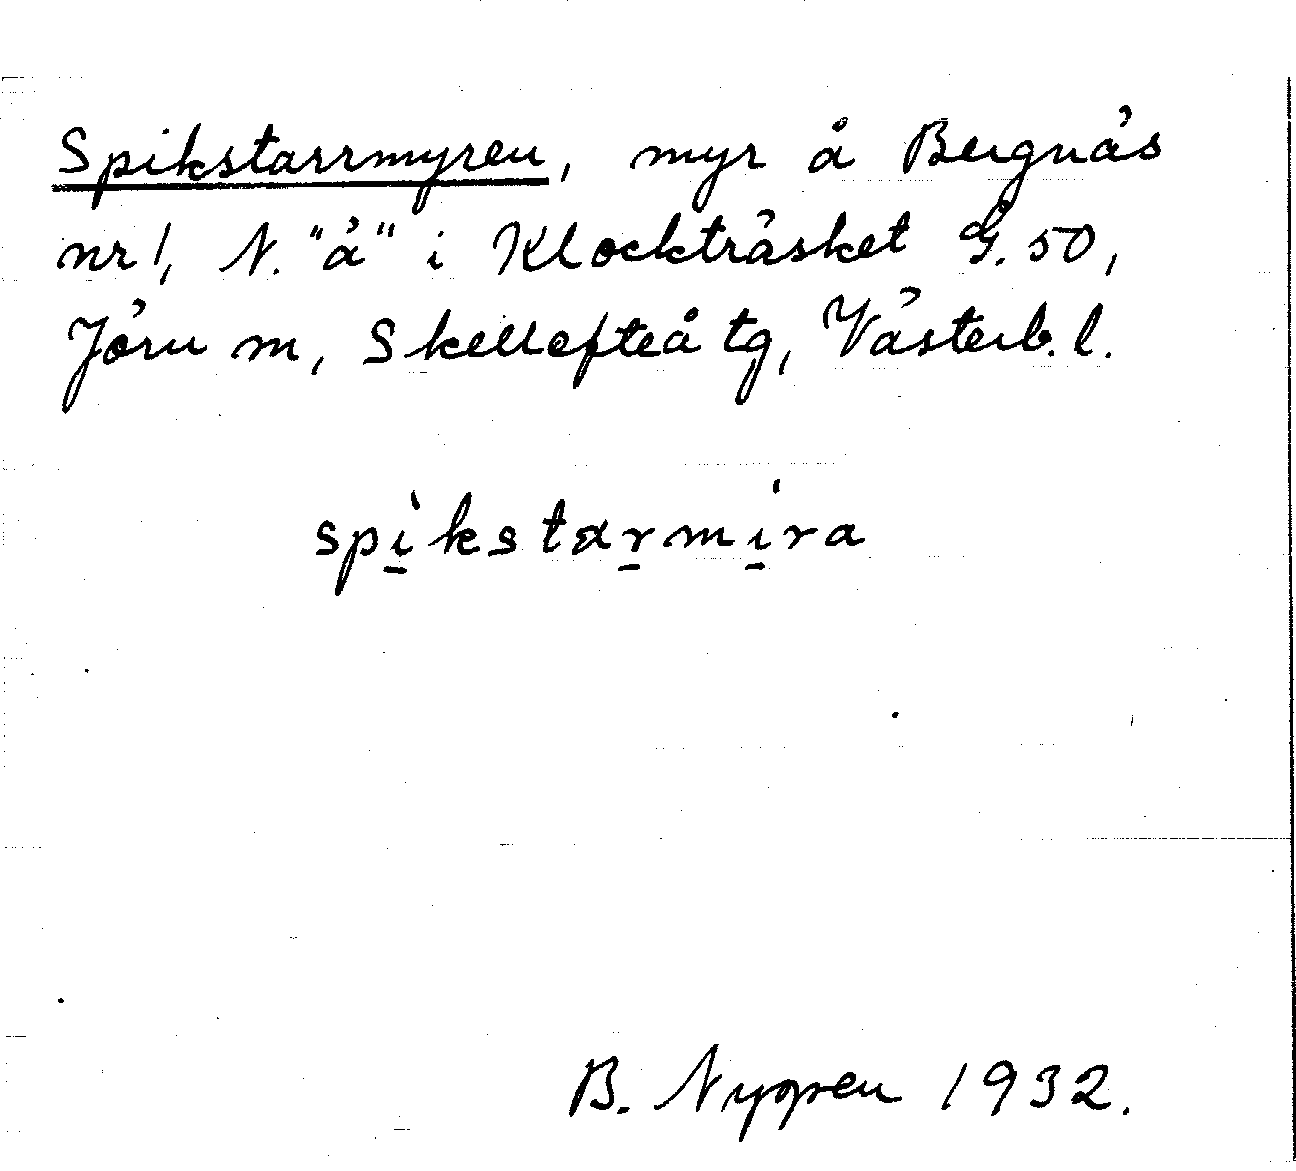 Spikstarrmyren, myr å Bergnäs
nr 1, N. "ä" i Klockträsket G. 50,
Jörn m, Skellefteå tg, Västerb. l.
spi̱kstar̠mi̱ra
B. Nygren 1932.